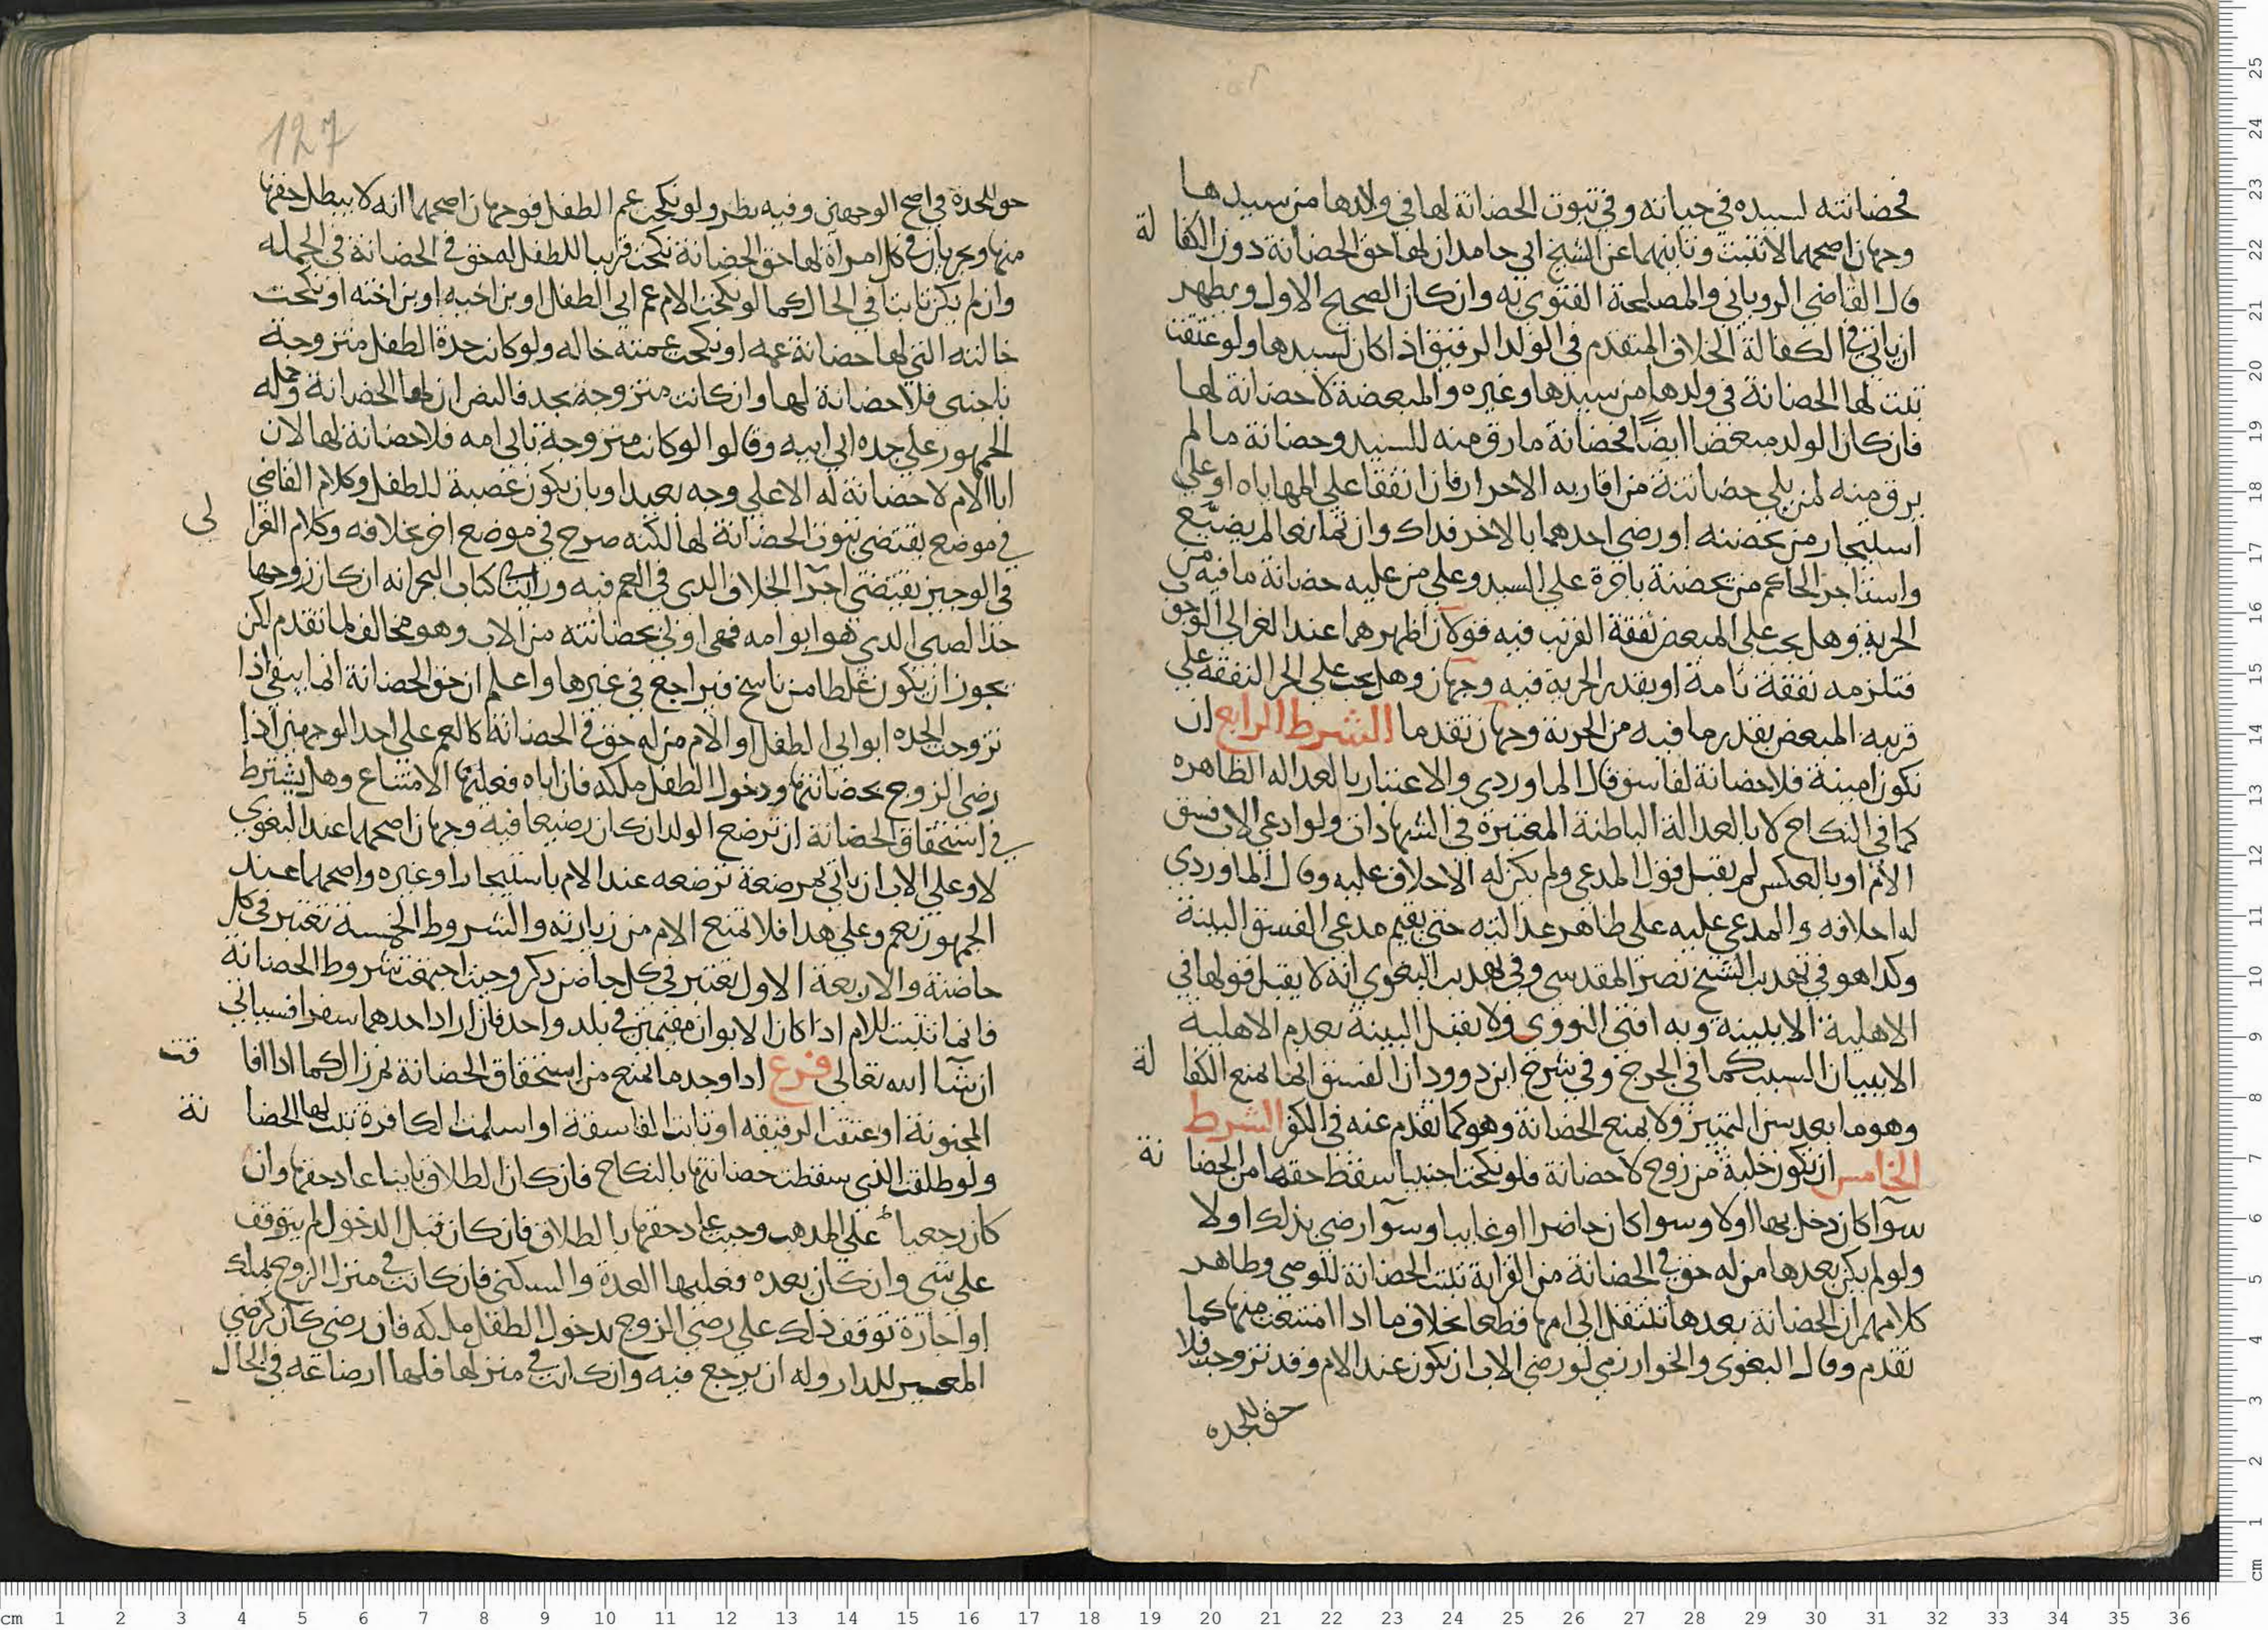 فحضانته لسيده في حياته وفي ثبوت الحضانة لها في ولدها من سيدها
وجهان اصحهما لا تثبت وثانيهما عن الشيخ ابي حامد ان لها حق الحضانة دون الكفالة
قال القاضي الروياني والمصلحة الفتوى به وان كان الصحيح الاول ويظهر
ان ياتي في الكفالة الخلاف المتقدم في الولد الرقيق اذا كان لسيدها ولو عتقت
ثبت لها الحضانة في ولدها من سيدها وغيره والمبعضة لا حضانة لها
فان كان الولد مبعضا ايضًا فحضانة ما رق منه للسيد وحضانة ما لم
يرق منه لمن يلي حضانته من اقاربه الاحرار فان اتفقا على المهاياه او على
استيجار من تحضنه او رضي احدهما بالاخر فذاك وان تمانعا لم يضيَّع
واستاجر الحاكم من تحضنه باجرة على السيد وعلى من عليه حضانة ما فيه من
الحرية وهل يجب على المبعض نفقة القريب فيه قولان اظهرهما عند الغزالي الوجوب
فتلزمه نفقة تامة او بقدر الحرية فيه وجهان وهل يجب على الحر النفقة على
قريبه المبعض بقدر ما فيه من الحرية وجهان تقدما الشرط الرابع ان
تكون امينة فلا حضانة لفاسق قال الماوردي والاعتبار بالعداله الظاهره
كما في النكاح لا بالعدالة الباطنة المعتبرة في الشهادات ولو ادعى الاب فسق
الام او بالعكس لم يقبل قول المدعي ولم يكن له الاحلاف عليه وقال الماوردي
له احلافه والمدعى عليه على ظاهر عدالته حتى يقيم مدعي الفسق البينة
وكذا هو في تهذيب الشيخ نصر المقدسي وفي تهذيب البغوي انه لا يقبل قولها في
الاهلية الا ببينة وبه افتى النووي ولا تقبل البينة بعدم الاهلية
الا ببيان السبب كما في الجرح وفي شرح ابن دوود ان الفسق انما يمنع الكفالة
وهو ما بعد سن التمييز ولا يمنع الحضانة وهو كما تقدم عنه في الكفر الشرط
الخامس ان تكون خلية من زوج لا حضانة فلو نكحت اجنبيا سقط حقها من الحضانة
سوآ كان دخل بها اولا وسوا كان حاضرا او غايبا وسوآ رضي بذلك اولا
ولو لم يكن بعدها من له حق في الحضانة من القرابة ثبتت الحضانة للوصي وظاهر
كلامهم ان الحضانة بعدها تنتقل الى امها قطعا بخلاف ما اذا امتنعت منها كما
تقدم وقال البغوي والخوارزمي لو رضي الاب ان تكون عند الام وقد تزوجت فلا
حق للجده
127
حق للجدة في اصح الوجهين وفيه نظر ولو نكحت عم الطفل فوجهان اصحهما انه لا يبطل حقها
منها ويجريان في كل امرأة لها حق الحضانة نكحت قريبا للطفل له حق في الحضانة في الجمله
وان لم يكن ثابتا في الحال كما لو نكحت الام عم ابي الطفل او بن اخيه او بن اخته او نكحت
خالته التي لها حضانة عمه او نكحت عمته خاله ولو كانت جدة الطفل متزوجة
باجنبي فلا حضانة لها وان كانت متزوجة بجد فالنص ان لها الحضانة وحمله
الجمهور على جده ابي ابيه وقالوا لو كانت متزوجة بابي امه فلا حضانة لها لان
ابا الام لا حضانة له الا على وجه بعيد او بان يكون عصبة للطفل وكلام القاضي
في موضع يقتضي ثبوت الحضانة لها لكنه صرح في موضع اخر بخلافه وكلام الغزالي
في الوجيز يقتضي اجرآ الخلاف الذي في العم فيه ورايت كتاب البحر انه ان كان زوجها
جد الصبي الذي هو ابو امه فهي اولى بحضانته من الاب وهو مخالف لما تقدم لكن
يجوز ان يكون غلطا من ناسخ فيراجع في غيرها واعلم ان حق الحضانة انما يبقى اذا
تزوجت الجده ابو ابي الطفل او الام من له حق في الحضانة كالعم على احد الوجهين اذا
رضي الزوج بحضانتها ودخول الطفل ملكه فان اباه فعليها الامتناع وهل يشترط
في استحقاق الحضانة ان ترضع الولد ان كان رضيعا فيه وجهان اصحهما عند البغوي
لا وعلى الاب ان ياتي بمرضعة ترضعه عند الام باستيجار او غيره واصحهما عند
الجمهور نعم وعلى هذا فلا تمنع الام من زيارته والشروط الخمسة تعتبر في كل
حاضنة والاربعة الاول تعتبر في كل حاضن ذكر وحيث اجتمعت شروط الحضانة
فانما تثبت للام اذا كان الابوان مقيمين في بلد واحد فان اراد احدهما سفرا فسياتي
ان شآ الله تعالى فرع اذا وجد ما يمنع من استحقاق الحضانة ثم زال كما اذا افاقت
المجنونة او عتقت الرقيقه او تابت الفاسقة او اسلمت الكافرة ثبت لها الحضانة
ولو طلقت الذي سقطت حضانتها بالنكاح فان كان الطلاق باينا عاد حقها وان
كان رجعيا على المذهب وحيث عاد حقها بالطلاق فان كان قبل الدخول لم يتوقف
على شي وان كان بعده فعليها العدة والسكنى فان كانت في منزل الزوج بملك
او اجارة توقف ذلك على رضي الزوج بدخول الطفل ملكه فان رضي كان كرضي
المعير للدار وله ان يرجع فيه وان كانت في منزلها فلها ارضاعه في الحال